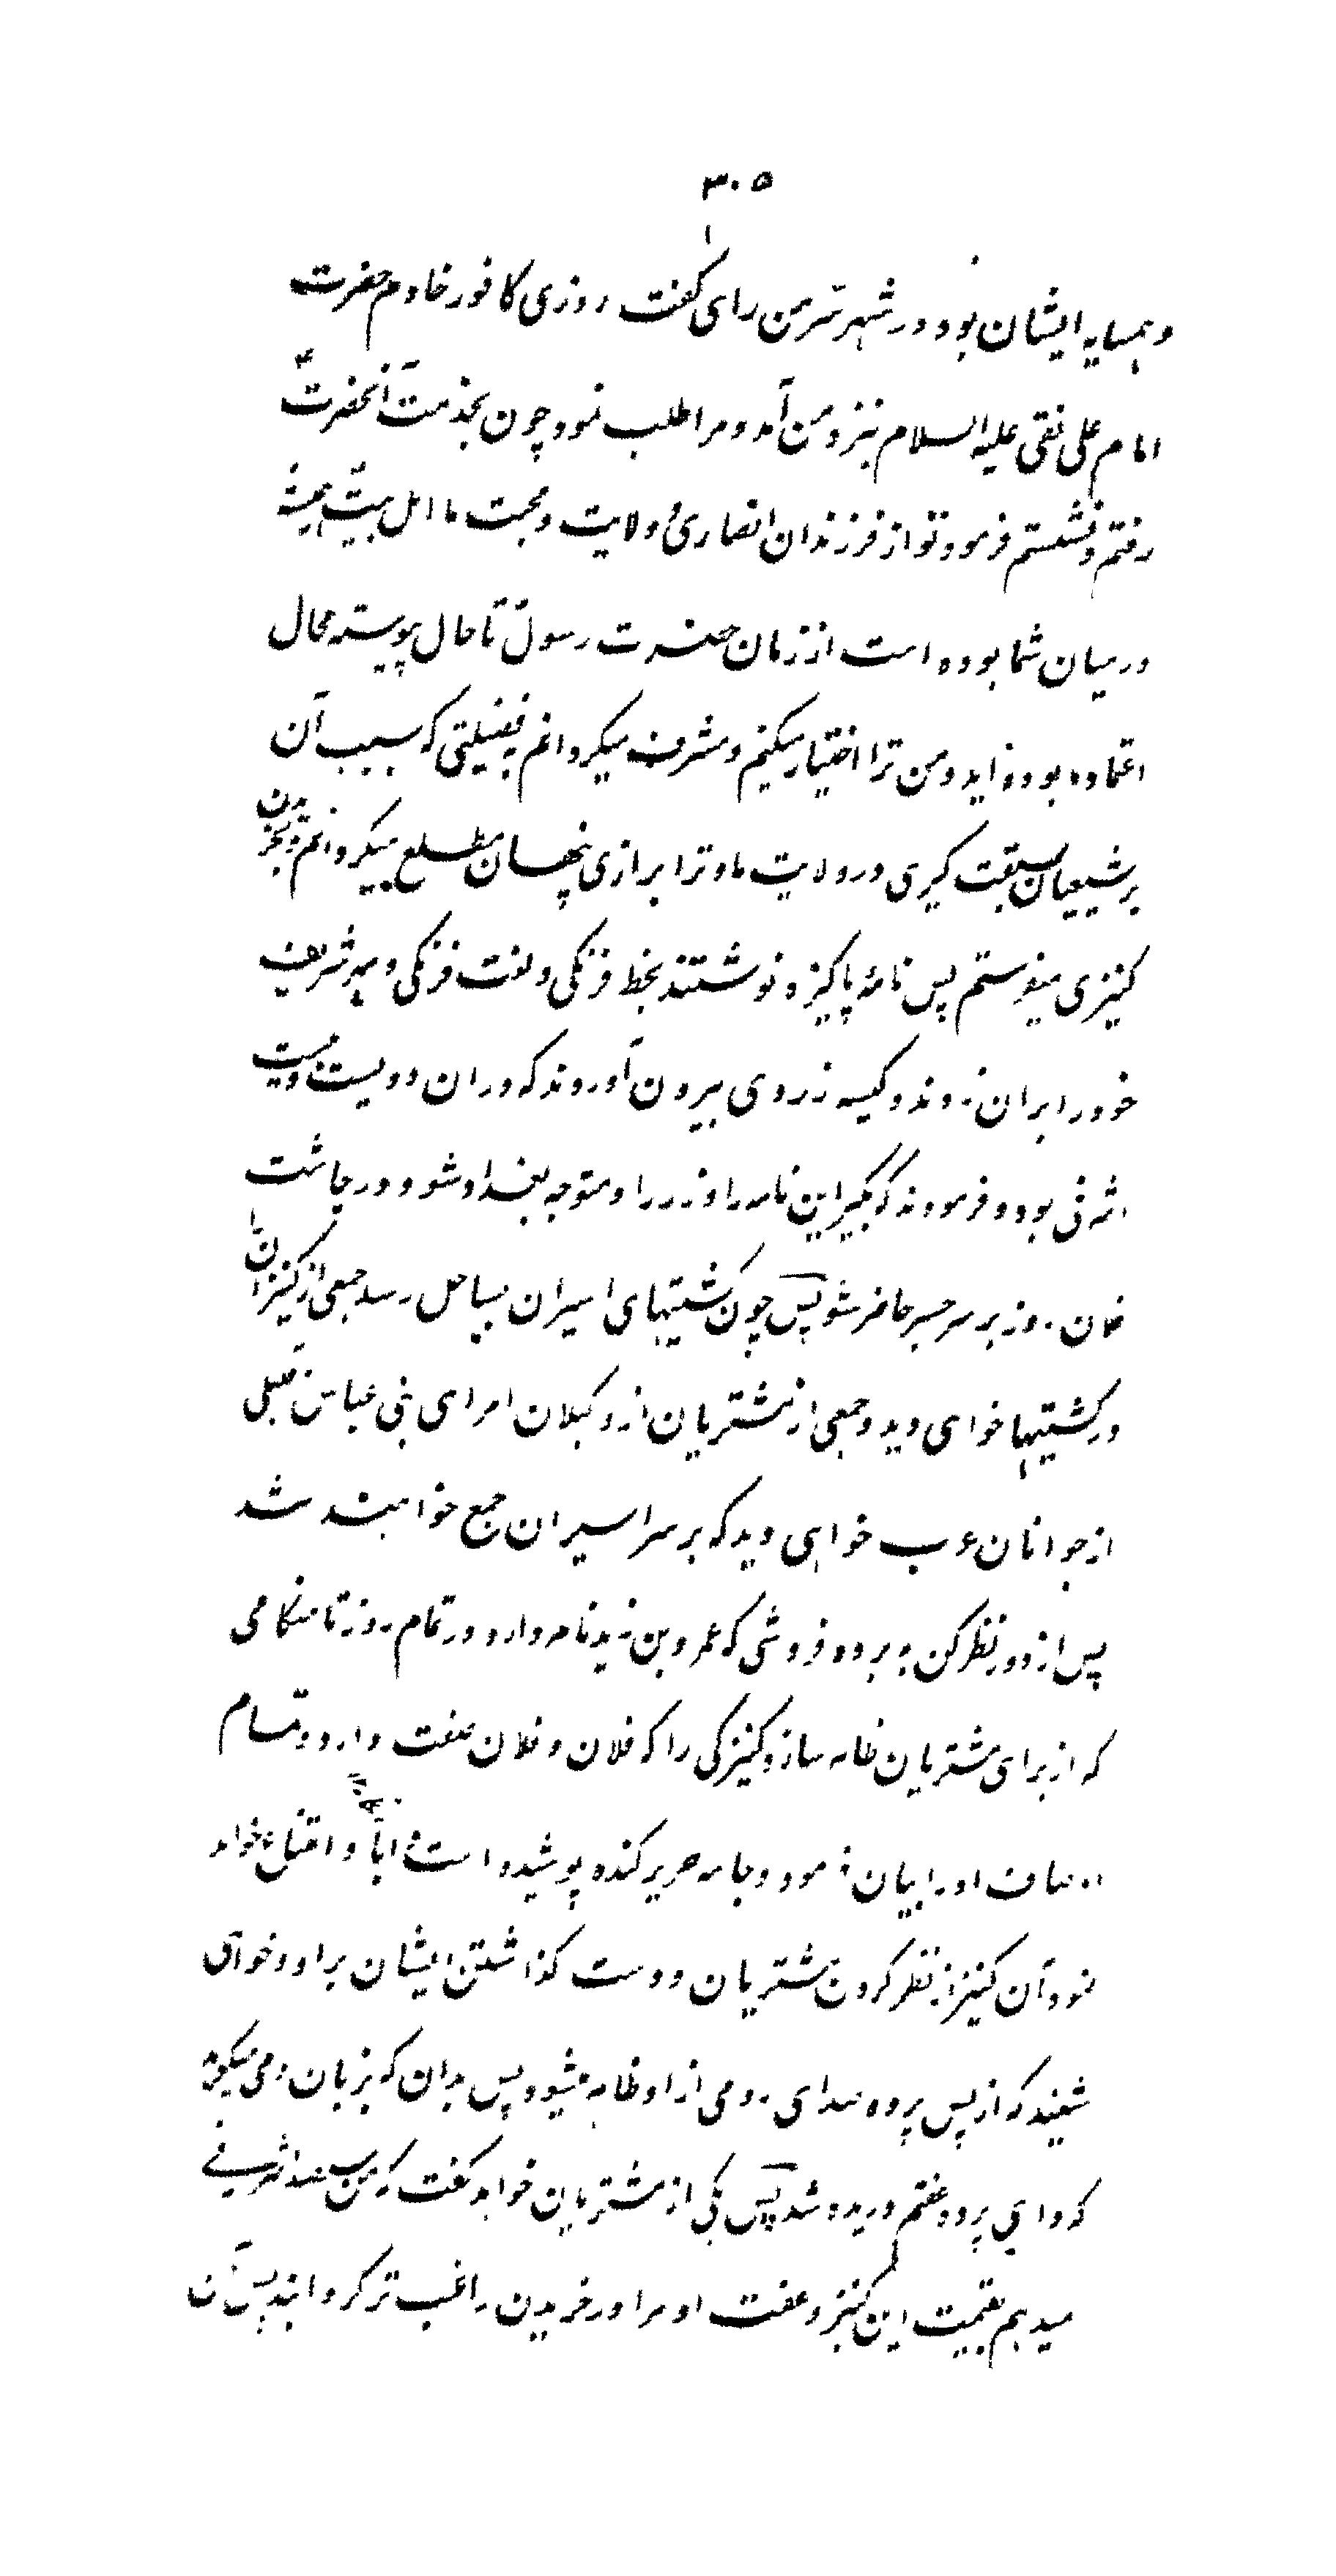 ۳۰۵
و همسایه ایشان بود در شهر سرمن رای گفت روزی کافور خادم حضرت
امام علی نقی علیه السلام بنزد من آمد و مرا طلب نمود چون بخدمت آنحضرت ع
رفتم و نشستم فرمود تو از فرزندان انصاری و ولایت و محبت ما اهل بیت همیشه
در میان شما بوده است از زمان حضرت رسول تا حال پیوسته محال
اعتماد ما بوده اید و من ترا اختیار میکنم و مشرف میکردانم به فضیلتی که بسبب آن
بر شیعیان سبقت گیری در ولایت ما و ترا برازی پنهان مطلع میکردانم و بخریدن
کنیزی میفرستم پس نامهٔ پاکیزه نوشتند بخط فرنکی و لغت فرنکی و مهر شریف
خود را بران زدند و کیسه زردی بیرون آوردند که در ان دویست و بیست
اشرفی بود و فرمودند که بگیر این نامه را و زر را و متوجه بغداد شو و در چاشت
فلان روز بر سر جسر حاضر شو پس چون کشتیهای اسیران بساحل رسد جمعی از کنیزان
در کشتیها خواهی دید و جمعی از مشتریان از وکیلان امرای بنی عباس و قلیلی
از جوانان عرب خواهی دید که بر سر اسیران جمع خواهند شد
پس از دور نظر کن به برده فروشی که عمرو بن زید نام دارد در تمام روز تا هنکامی
که از برای مشتریان ظاهر سازد کنیزکی را که فلان و فلان صفت دارد و تمام
اوصاف او را بیان فرمود و جامه حریر کنده پوشیده است و ابا و امتناع خواهد
نمود آن کنیز از نظر کردن مشتریان و دست کذاشتن ایشان بر او و خواهی
شنید که از پس پرده صدای رومی از او ظاهر میشود پس بدان که بزبان رومی میکوید
که وای پرده عفتم دریده شد پس یکی از مشتریان خواهد گفت که من سیصد اشرفی
میدهم بقیمت این کنیز و عفت او مرا در خریدن راغب تر کردانید پس آن